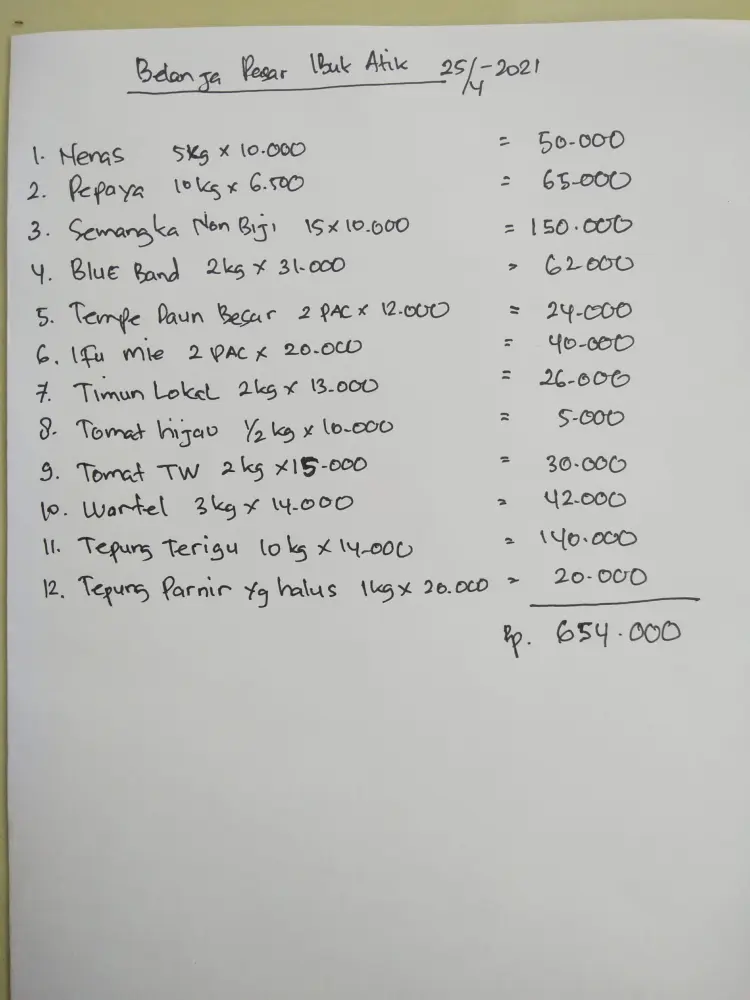 Belanja Pasar Ibuk Atik 25/4-2021
1. Nenas 5kg x 10.000 = 50.000
2. Pepaya 10kg x 6.500 = 65.000
3. Semangka Non Biji 15 x 10.000 = 150.000
4. Blue Band 2kg x 31.000 = 62.000
5. Tempe Daun Besar 2 PAC x 12.000 = 24.000
6. Ifu mie 2 PAC x 20.000 = 40.000
7. Timun Lokal 2kg x 13.000 = 26.000
8. Tomat hijau 1/2 kg x 10.000 = 5.000
9. Tomat TW 2kg x 15.000 = 30.000
10. Wortel 3kg x 14.000 = 42.000
11. Tepung Terigu 10kg x 14.000 = 140.000
12. Tepung Parnir yg halus 1kg x 20.000 = 20.000
Rp. 654.000